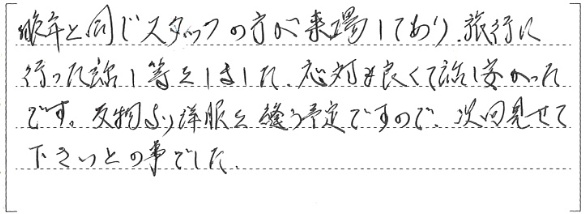 昨年と同じスタッフの方が来場しており、旅行に
行った話し等をしました、応対も良くて話し安かった
です。反物より洋服を縫う予定ですので、次回見せて
下さいとの事でした、